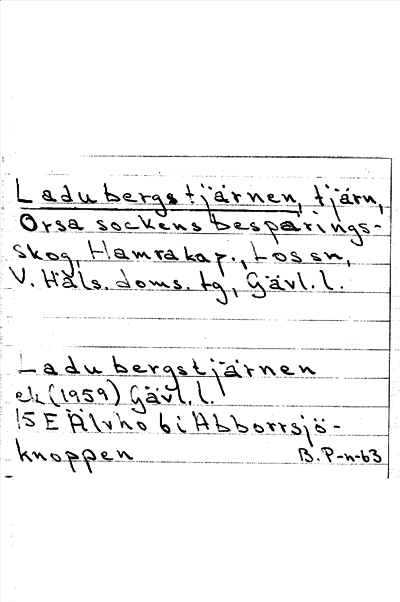 Ladubergstjärnen, tjärn,
Orsa sockens besparings-
skog, Hamra kap., Los sn,
V. Häls. doms. tg, Gävl. l.
Ladubergstjärnen
ek (1959) Gävl. l.
15 E Älvho 6 i Abborrsjö-
knoppen
B. P-n-63